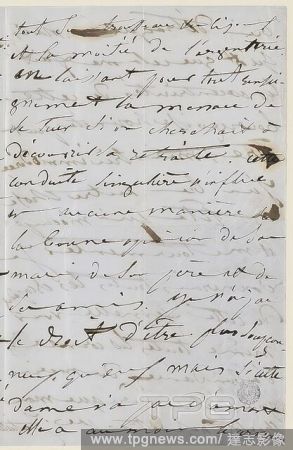 tout le trousseau de linge
et la moitié de l'argenterie
en laissant pour tout rensei-
gnement la menace de
se tuer si on cherchait à
découvrir sa retraite. cette
conduite singulière n'influe
en aucune manière
la bonne opinion de son
mari, de son père et de
ses amis. je n'ai pas
le droit d'être plus soupçon-
neux qu'eux mais si cette
dame n'a pas d'amant
elle a au moins
TPG
www.tpgnews.com / 達志影像